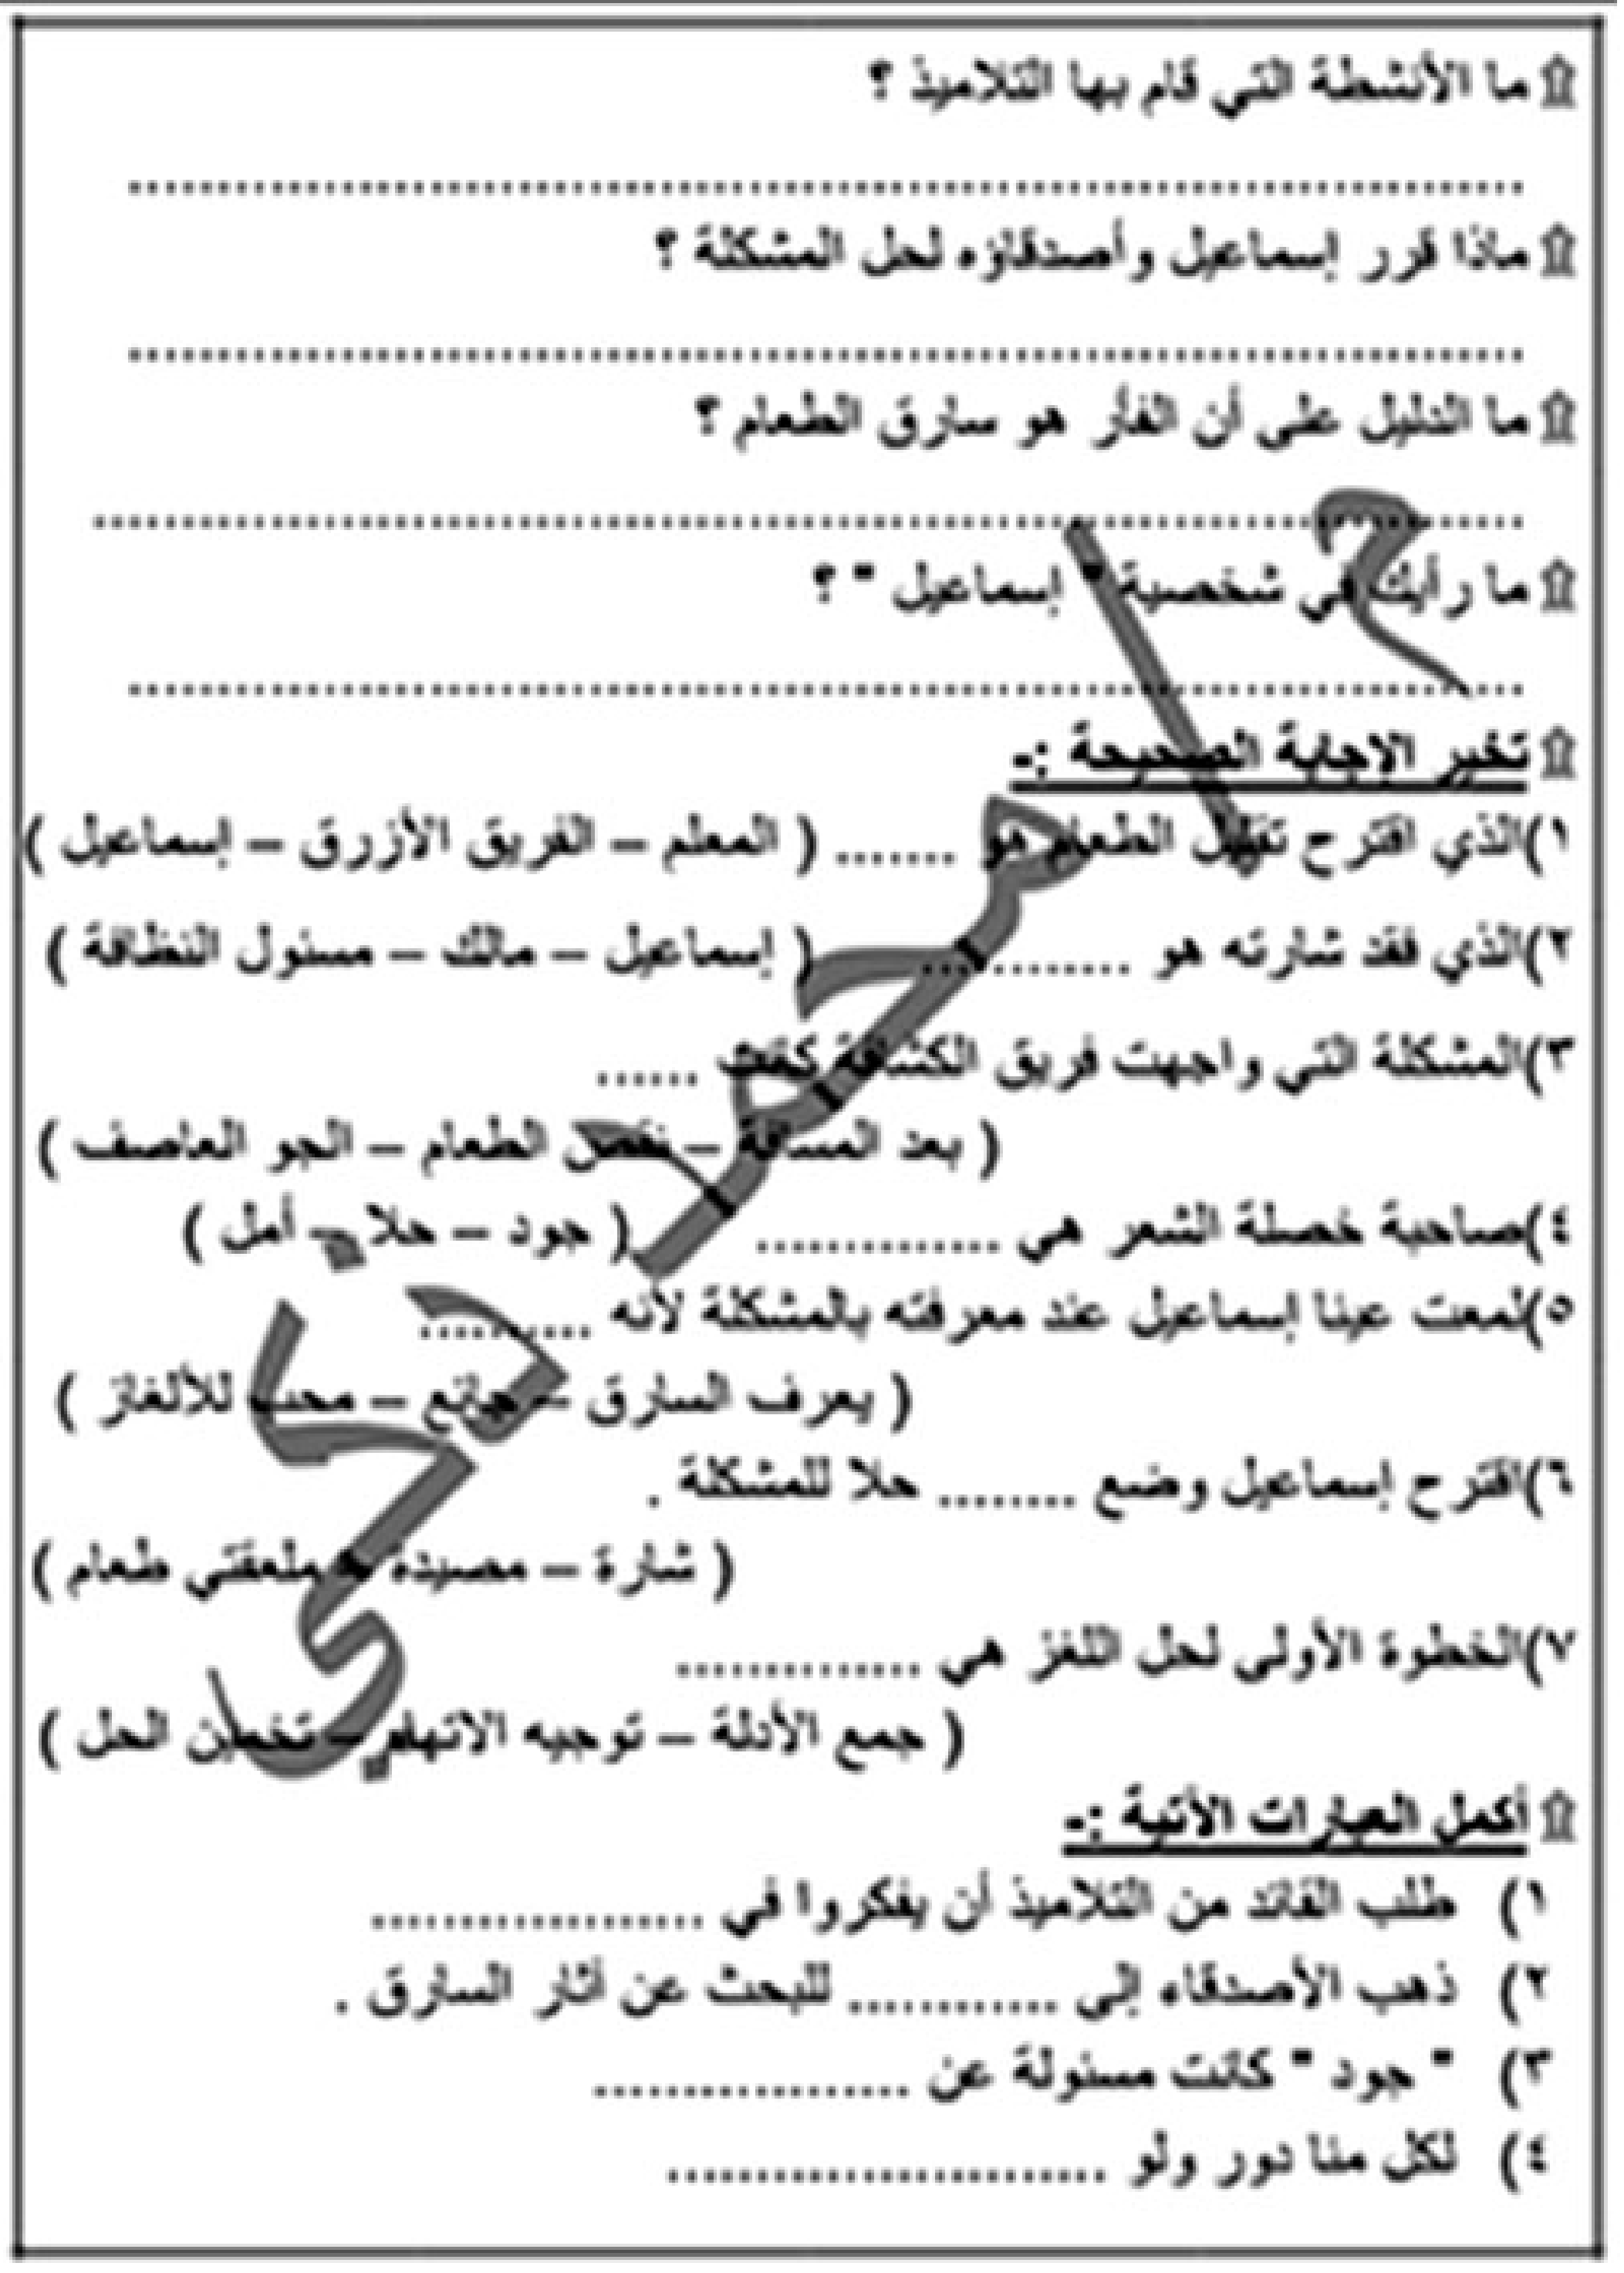 ۩ ما الأنشطة التي قام بها التلاميذ ؟
........................................
۩ ماذا قرر إسماعيل وأصدقاؤه لحل المشكلة ؟
........................................
۩ ما الدليل على أن الفأر هو سارق الطعام ؟
........................................
۩ ما رأيك في شخصية " إسماعيل " ؟
........................................
۩ تخير الإجابة الصحيحة :-
١)الذي اقترح تقليل الطعام هو ....... ( المعلم – الفريق الأزرق – إسماعيل )
٢)الذي فقد شارته هو ............ ( إسماعيل – مالك – مسئول النظافة )
٣)المشكلة التي واجهت فريق الكشافة كانت ......
( بعد المسافة – نقص الطعام – الجو العاصف )
٤)صاحبة خصلة الشعر هي .............. ( جود – حلا – أمل )
٥)لمعت عينا إسماعيل عند معرفته بالمشكلة لأنه ..........
( يعرف السارق – جائع – محب للألغاز )
٦)اقترح إسماعيل وضع ........ حلا للمشكلة .
( شارة – مصيدة – ملعقتي طعام )
٧)الخطوة الأولى لحل اللغز هي ..............
( جمع الأدلة – توجيه الاتهام – تخمين الحل )
۩ أكمل العبارات الآتية :-
١) طلب القائد من التلاميذ أن يفكروا في ...................
٢) ذهب الأصدقاء إلى ............ للبحث عن آثار السارق .
٣) " جود " كانت مسئولة عن ..................
٤) لكل منا دور ولو .........................